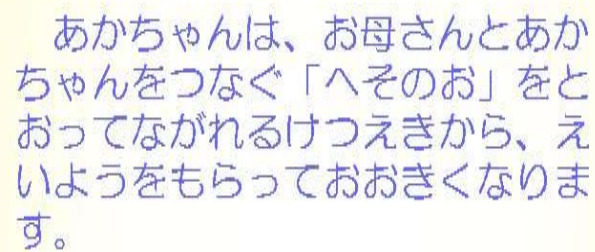 あかちゃんは、お母さんとあか
ちゃんをつなぐ「へそのお」をと
おってながれるけつえきから、え
いようをもらっておおきくなりま
す。